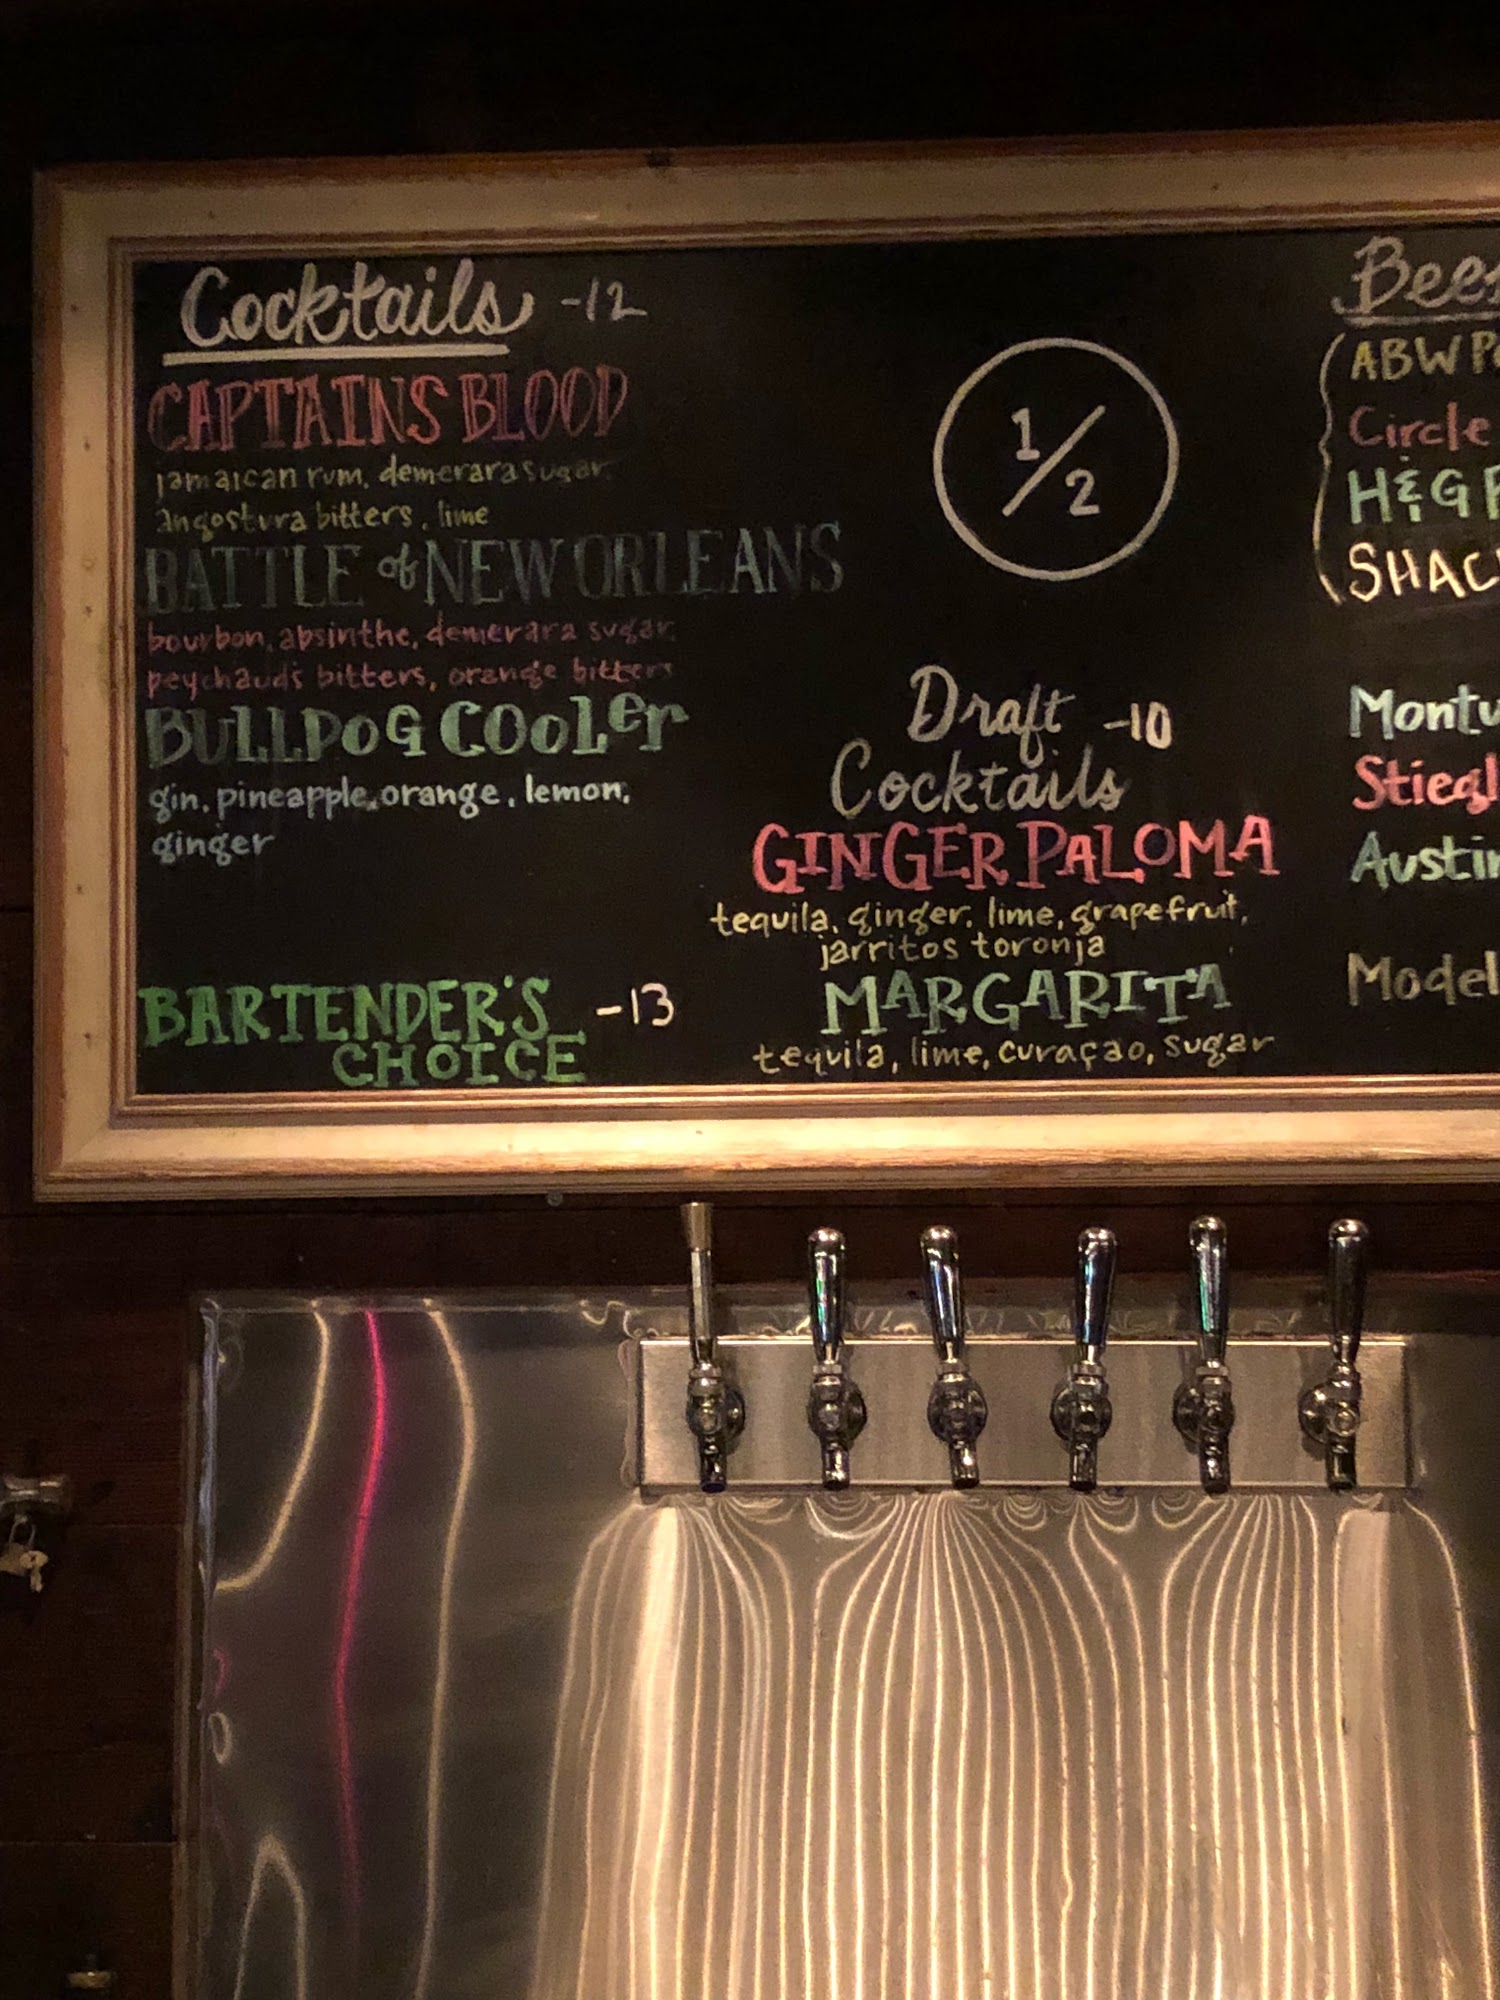 Cocktails -12
CAPTAINS BLOOD
jamaican rum, demerara sugar,
angostura bitters, lime
BATTLE of NEW ORLEANS
bourbon, absinthe, demerara sugar,
peychaud's bitters, orange bitters
BULLDOG COOLER
gin, pineapple, orange, lemon,
ginger
BARTENDER'S -13
CHOICE
1/2
Draft -10
Cocktails
GINGER PALOMA
tequila, ginger, lime, grapefruit,
jarritos toronja
MARGARITA
tequila, lime, curaçao, sugar
ABW
Circle
H&G